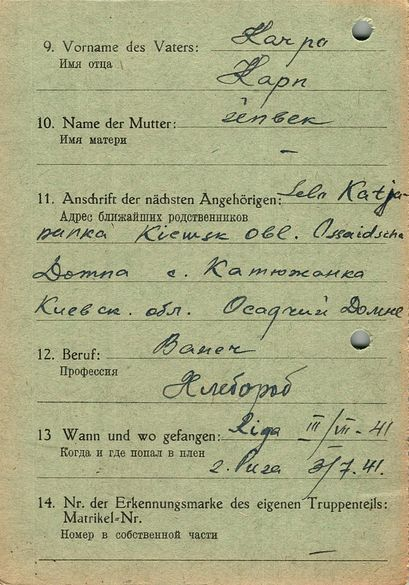 9. Vorname des Vaters: Karpa
Имя отца Карп
10. Name der Mutter:
Имя матери –
11. Anschrift der nächsten Angehörigen: Seln Katja-
Адрес ближайших родственников
Kiewsk obl.
с. Катюжанка
Киевск. обл. Осадчий Домне
12. Beruf:
Профессия
Хлебороб
13 Wann und wo gefangen: Riga III/VII - 41
Когда и где попал в плен
г. Рига 3/7.41.
14. Nr. der Erkennungsmarke des eigenen Truppenteils:
Matrikel-Nr.
Номер в собственной части –